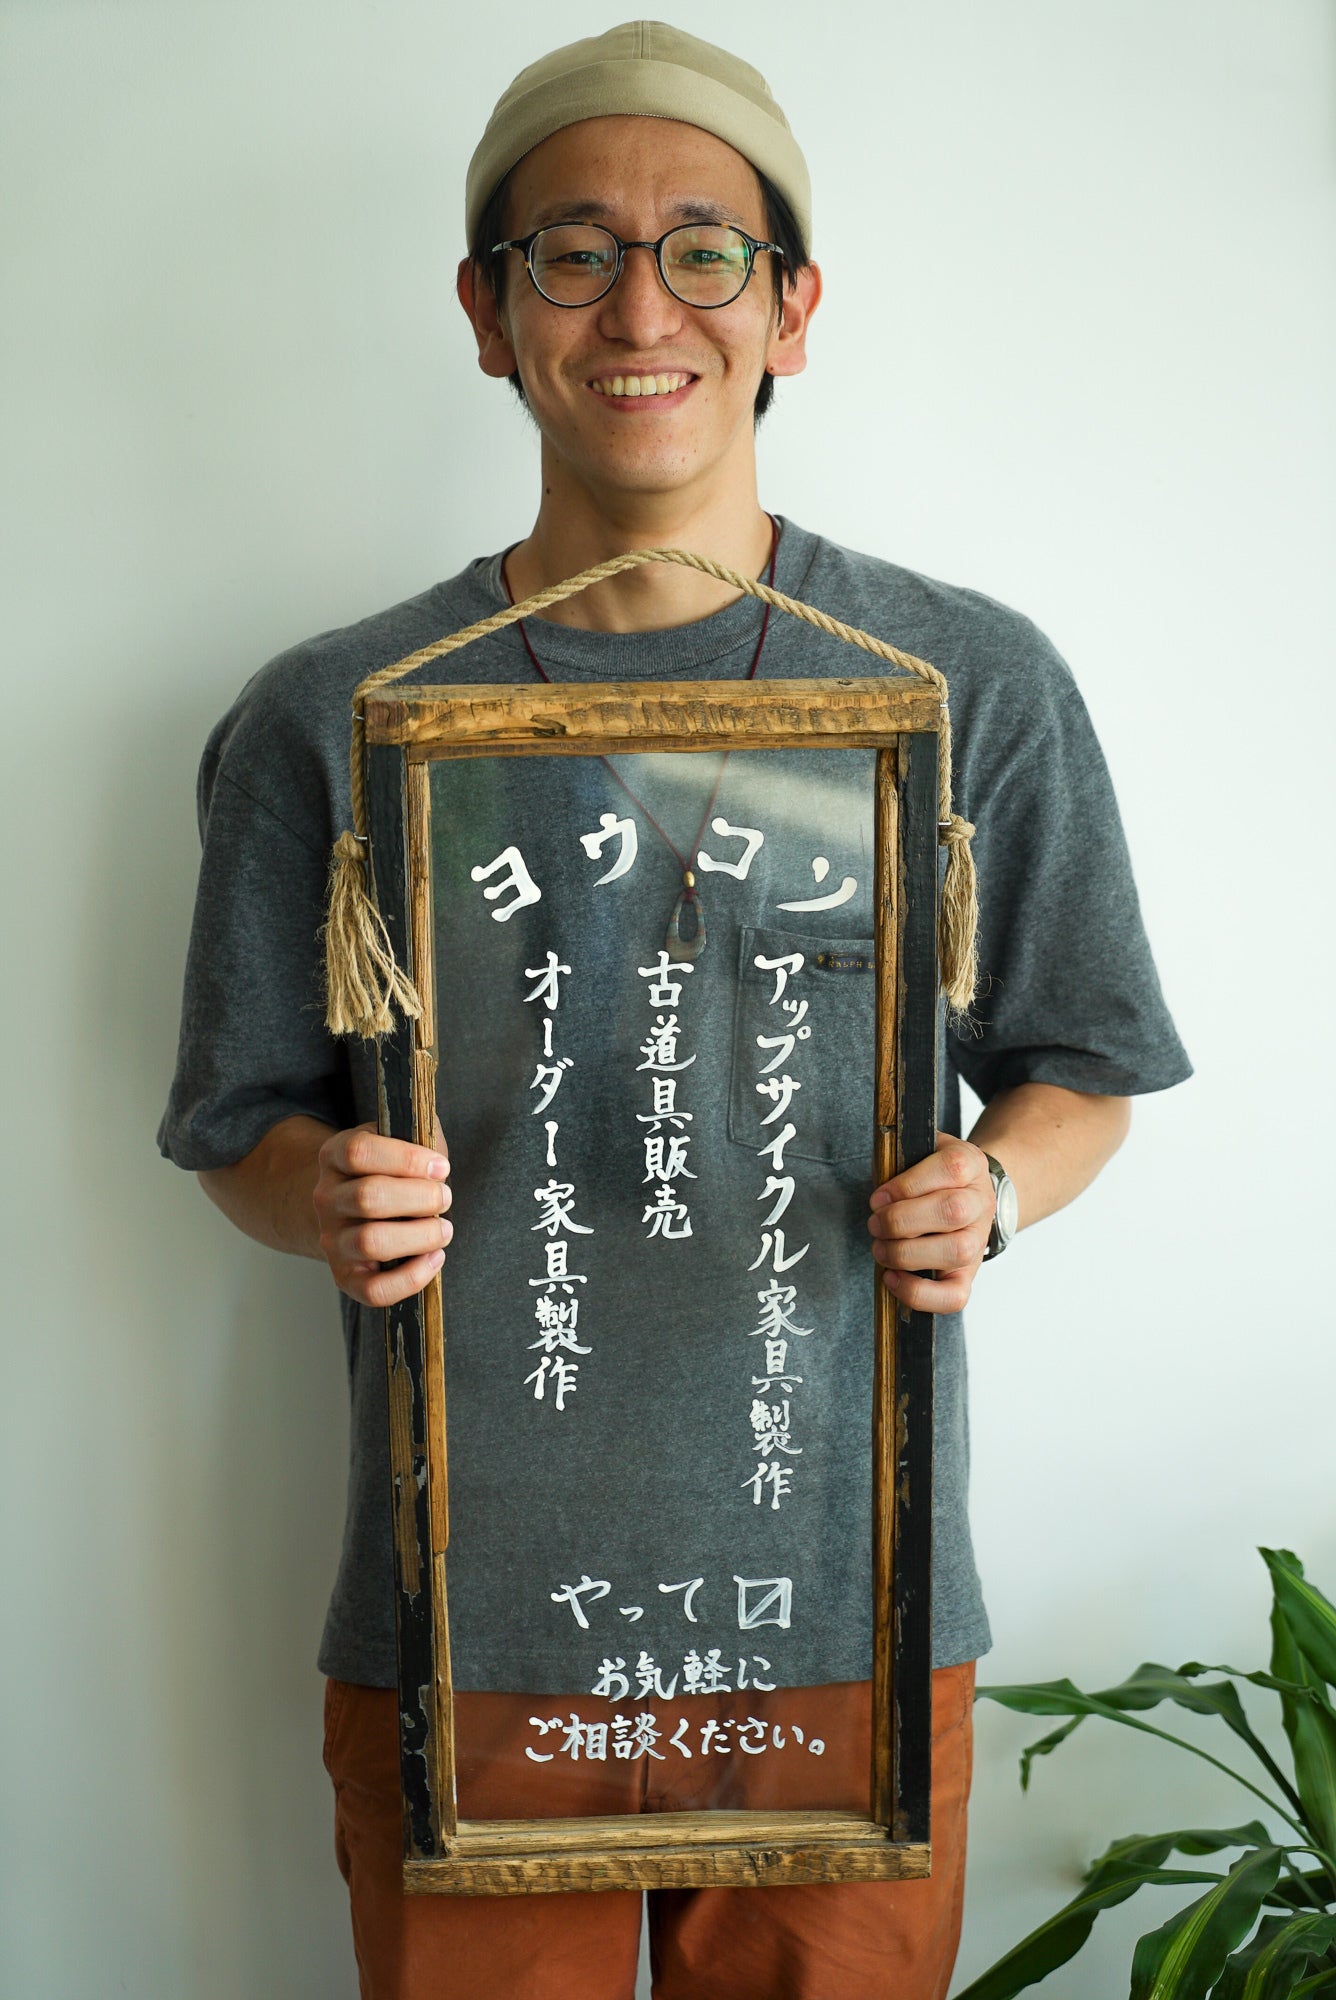 ヨウコソ
アップサイクル家具製作
古道具販売
オーダー家具製作
やって〼
お気軽に
ご相談ください。
RALPH